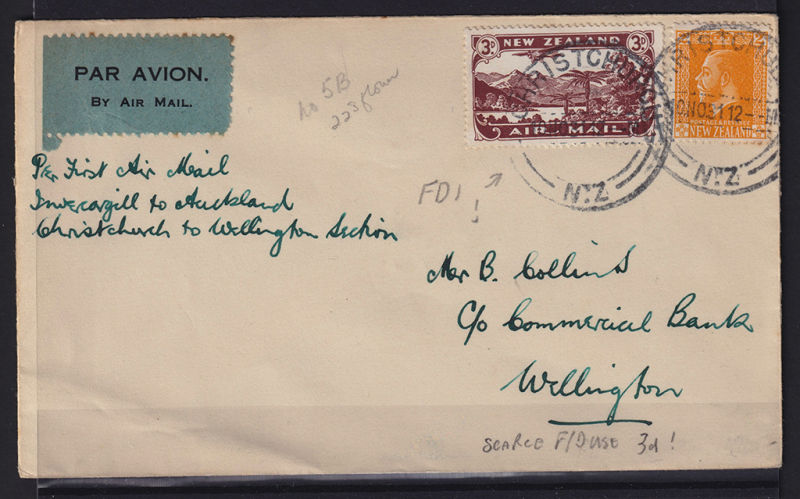 PAR AVION.
BY AIR MAIL.
No 5B
223 flown
3D NEW ZEALAND 3D
AIR MAIL
CHRISTCHURCH
N.Z
POSTAGE & REVENUE
NEW ZEALAND
CHRISTCHURCH
10NO31 12
N.Z
Per First Air Mail
Invercargill to Auckland
Christchurch to Wellington Section
FDI
!
Mr B. Collins
C/o Commercial Bank
Wellington
SCARCE F/D USE 3d!